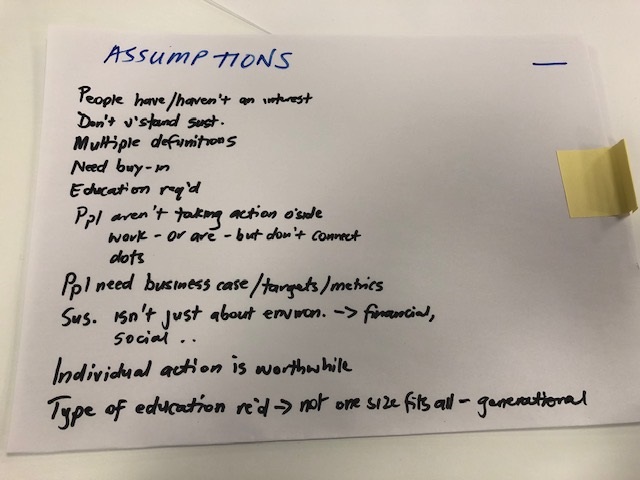 ASSUMPTIONS
People have/haven't an interest
Don't u'stand sust.
Multiple definitions
Need buy-in
Education req'd
Ppl aren't taking action o'side
work - or are - but don't connect
dots
Ppl need business case/targets/metrics
Sus. isn't just about environ. -> financial,
social ..
Individual action is worthwhile
Type of education re'd -> not one size fits all - generational